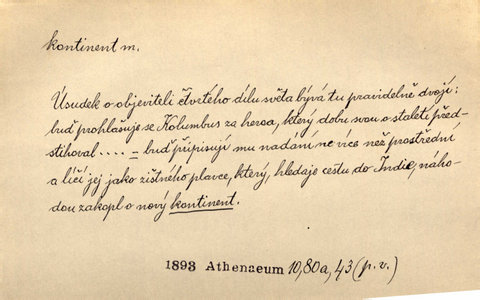 kontinent m.
Úsudek o objeviteli čtvrtého dílu světa bývá tu pravidelně dvojí:
buď prohlašuje se Kolumbus za heroa, který dobu svou o staletí před-
stihoval .... – buď připisují mu nadání ne více než prostřední
a líčí jej jako zištného plavce, který, hledaje cestu do Indie, náho-
dou zakopl o nový kontinent.
1893 Athenaeum 10,80a,43 (p.v.)